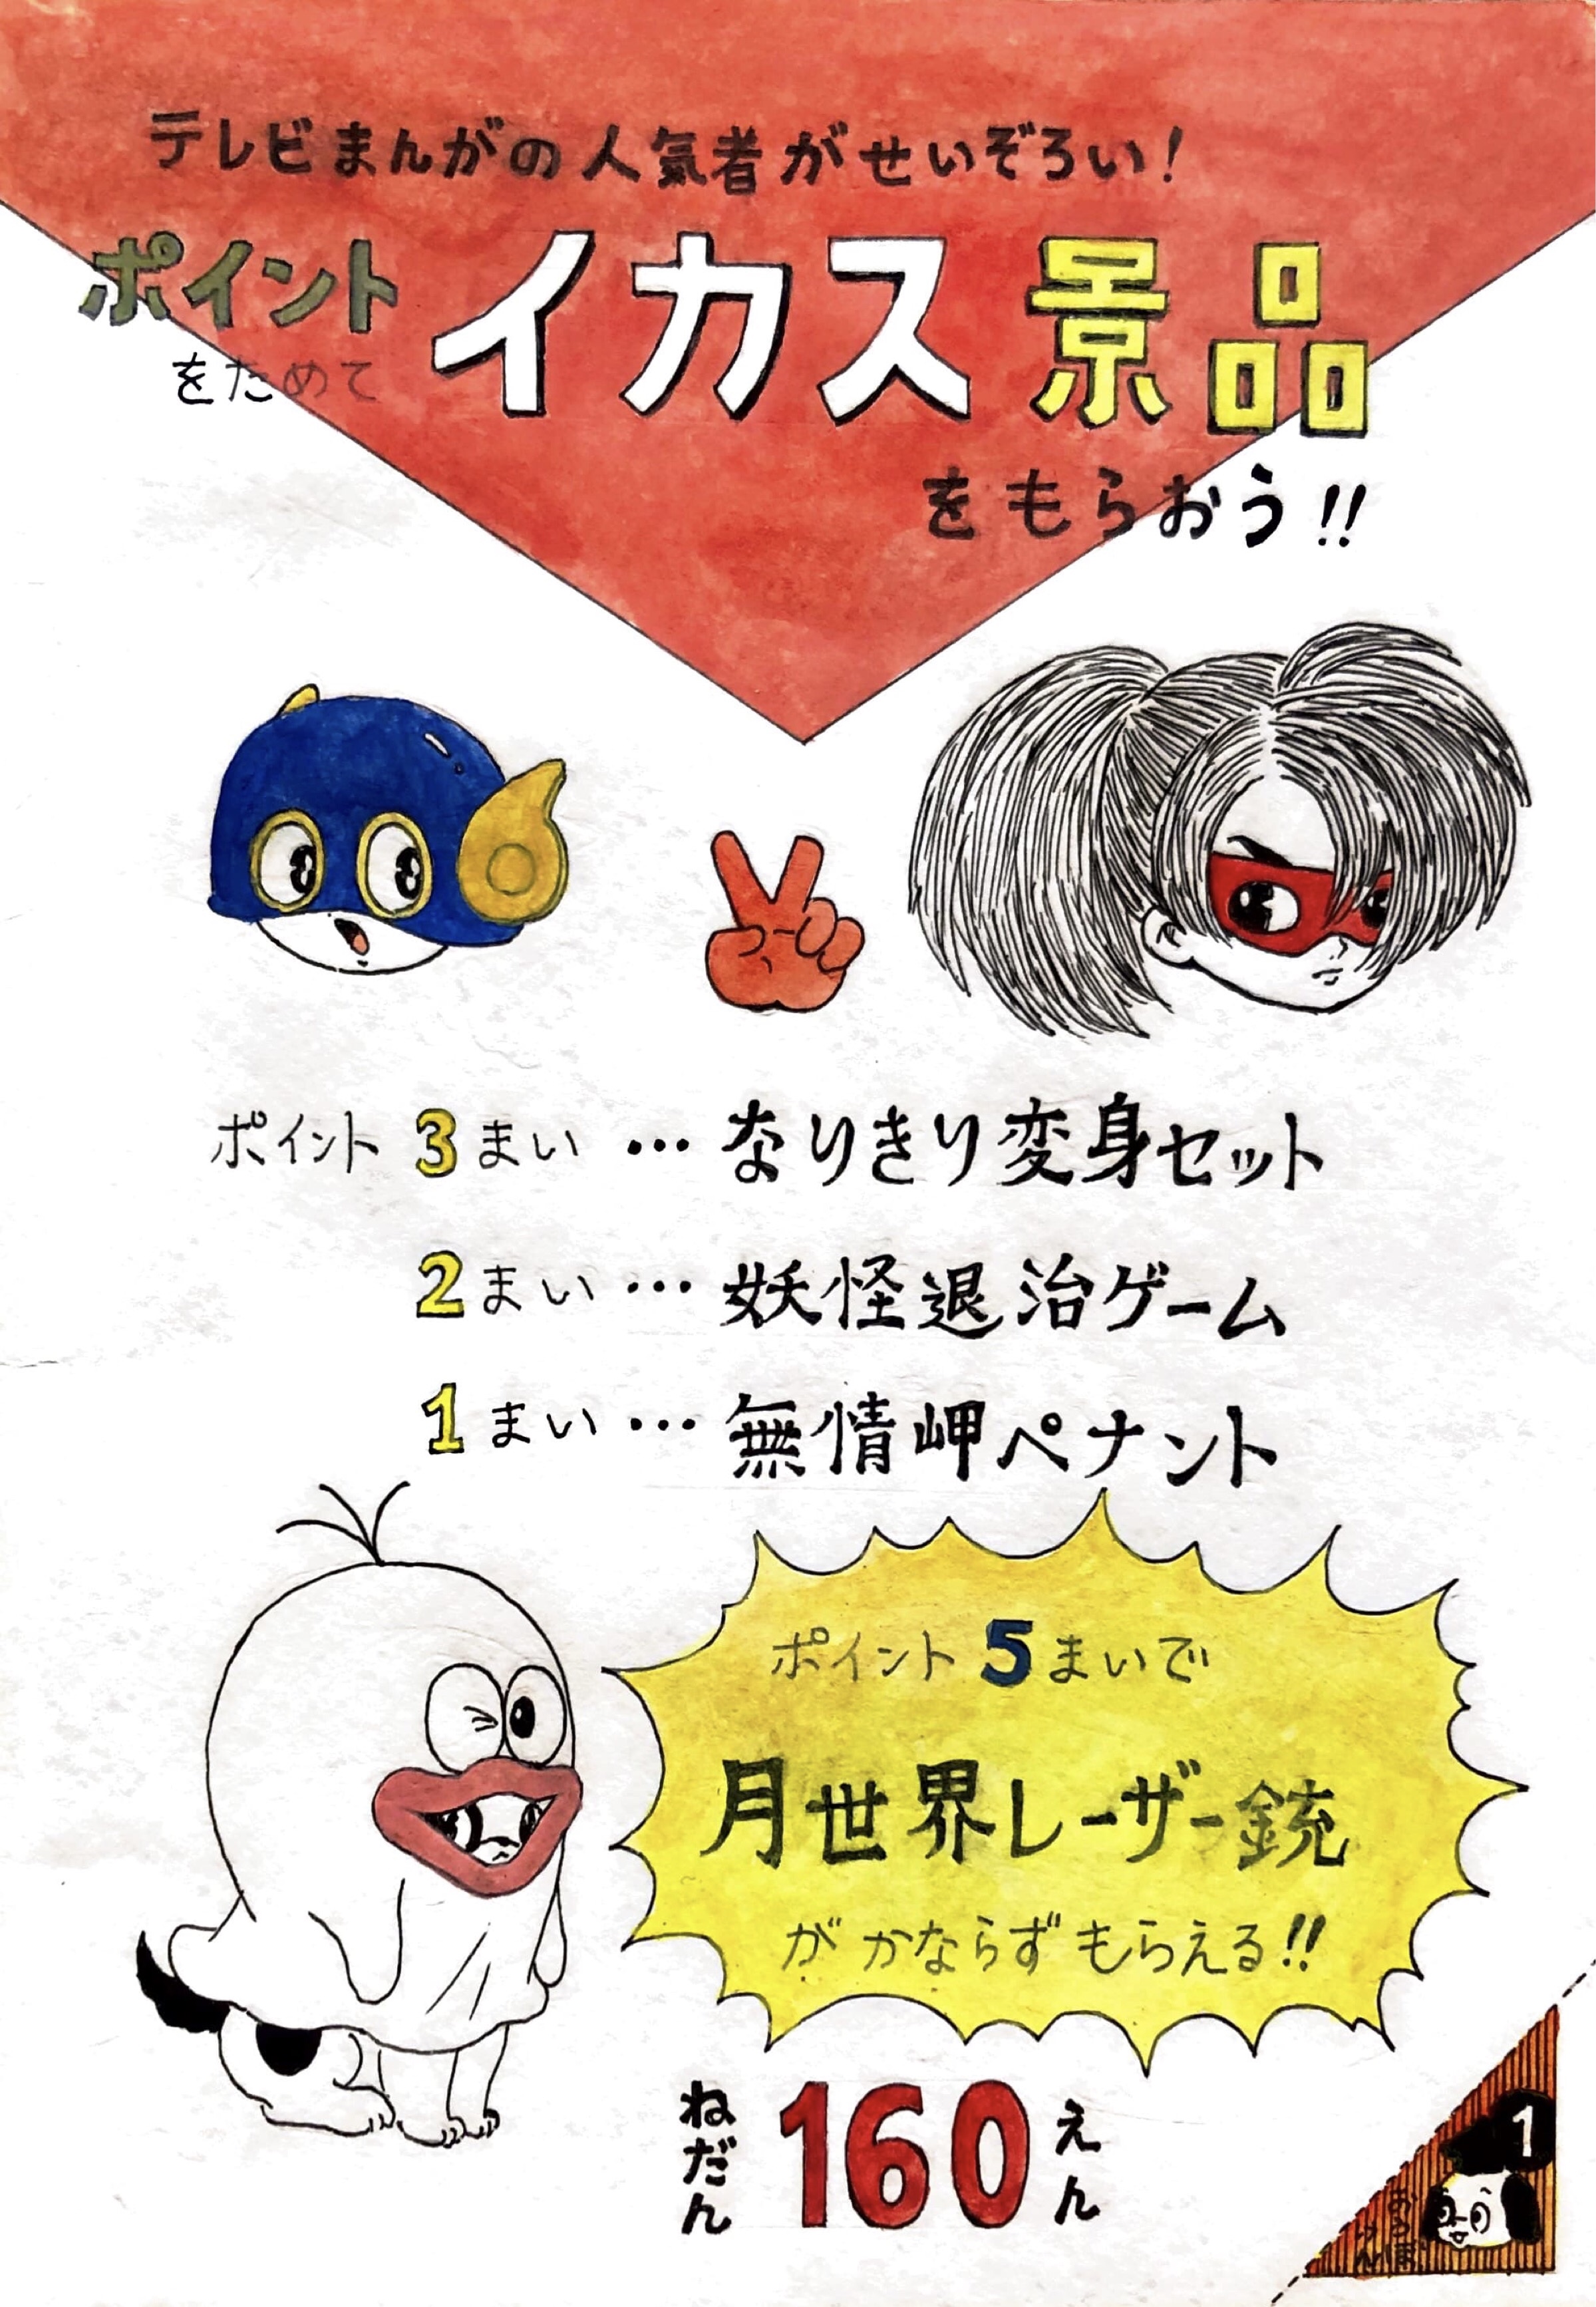 テレビまんがの人気者がせいぞろい!
ポイント
をためて
イカス景品
をもらおう!!
ポイント3まい…なりきり変身セット
2まい…妖怪退治ゲーム
1まい…無情岬ペナント
ポイント5まいで
月世界レーザー銃
がかならずもらえる!!
ねだん160えん
1